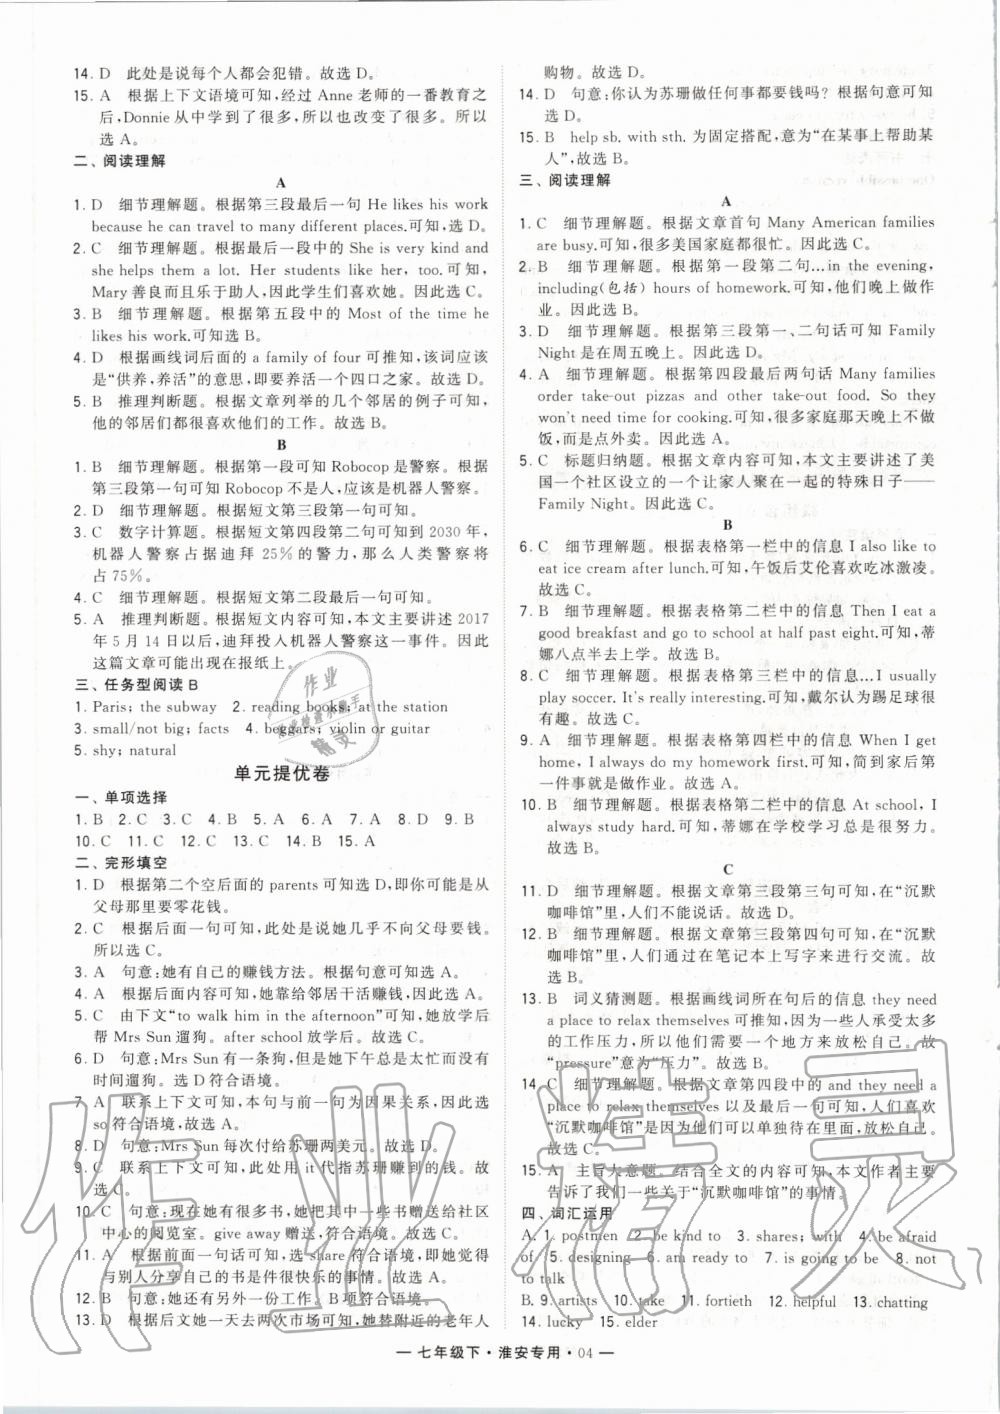 14. D 此处是说每个人都会犯错。故选 D。
15. A 根据上下文语境可知,经过 Anne 老师的一番教育之
后,Donnie 从中学到了很多,所以也改变了很多。所以
选 A。
二、阅读理解
A
1. D 细节理解题。根据第三段最后一句 He likes his work
because he can travel to many different places.可知,选 D。
2. C 细节理解题。根据最后一段中的 She is very kind and
she helps them a lot. Her students like her, too.可知,
Mary善良而且乐于助人,因此学生们喜欢她。因此选 C。
3. B 细节理解题。根据第五段中的 Most of the time he
likes his work.可知选 B。
4. D 根据画线词后面的 a family of four 可推知,该词应该
是“供养,养活”的意思,即要养活一个四口之家。故选 D。
5. B 推理判断题。根据文章列举的几个邻居的例子可知,
他的邻居们都很喜欢他们的工作。故选 B。
B
1. B 细节理解题。根据第一段可知 Robocop 是警察。根据
第三段第一句可知 Robocop 不是人,应该是机器人警察。
2. D 细节理解题。根据短文第三段第一句可知。
3. C 数字计算题。根据短文第四段第二句可知到 2030 年,
机器人警察占据迪拜 25%的警力,那么人类警察将
占 75%。
4. C 细节理解题。根据短文第二段最后一句可知。
5. A 推理判断题。根据短文内容可知,本文主要讲述 2017
年 5 月 14 日以后,迪拜投入机器人警察这一事件。因此
这篇文章可能出现在报纸上。
三、任务型阅读 B
1. Paris; the subway 2. reading books; at the station
3. small/not big; facts 4. beggars; violin or guitar
5. shy; natural
单元提优卷
一、单项选择
1. B 2. C 3. C 4. B 5. A 6. A 7. A 8. D 9. B
10. C 11. C 12. C 13. C 14. B 15. A
二、完形填空
1. D 根据第二个空后面的 parents 可知选 D,即你可能是从
父母那里要零花钱。
2. C 根据后面一句可知,此处是说她几乎不向父母要钱。
所以选 C。
3. A 句意:她有自己的赚钱方法。根据句意可知选 A。
4. A 根据后面内容可知,她靠给邻居干活赚钱。故选 A。
5. C 由下文“to walk him in the afternoon”可知,她放学后
帮 Mrs Sun 遛狗。after school 放学后。故选 C。
6. D 句意:Mrs Sun 有一条狗,但是她下午总是太忙而没有
时间遛狗。选 D符合语境。
7. A 联系上下文可知,本句与前一句为因果关系,因此选
so符合语境,故选 A。
8. D 句意:Mrs Sun 每次付给苏珊两美元。故选 D。
9. C 联系上下文可知,此处用 it 代指苏珊赚到的钱。故
选 C。
10. C 句意:现在她有很多书,她把其中一些书赠送给社区
中心的阅览室。give away赠送,符合语境。故选 C。
11. A 根据前面一句话可知,选 share 符合语境,即她觉得
与别人分享自己的书是件很快乐的事情。故选 A。
12. B 句意:她还有另外一份工作。B项符合语境。故选 B。
13. D 根据后文她一天去两次市场可知,她替附近的老年人
购物。故选 D。
14. D 句意:你认为苏珊做任何事都要钱吗?根据句意可知
选 D。
15. B help sb. with sth. 为固定搭配,意为“在某事上帮助某
人”,故选 B。
三、阅读理解
A
1. C 细节理解题。根据文章首句 Many American families
are busy.可知,很多美国家庭都很忙。因此选 C。
2. B 细节理解题。根据第一段第二句…in the evening,
including(包括) hours of homework.可知,他们晚上做作
业。因此选 B。
3. D 细节理解题。根据第三段第一、二句话可知 Family
Night是在周五晚上。因此选 D。
4. A 细节理解题。根据第四段最后两句话 Many families
order take-out pizzas and other take-out food. So they
won't need time for cooking.可知,很多家庭那天晚上不做
饭,而是点外卖。因此选 A。
5. C 标题归纳题。根据文章内容可知,本文主要讲述了美
国一个社区设立的一个让家人聚在一起的特殊日子——
Family Night。因此选 C。
B
6. C 细节理解题。根据表格第一栏中的信息 I also like to
eat ice cream after lunch.可知,午饭后艾伦喜欢吃冰激凌。
故选 C。
7. B 细节理解题。根据表格第二栏中的信息 Then I eat a
good breakfast and go to school at half past eight.可知,蒂
娜八点半去上学。故选 B。
8. C 细节理解题。根据表格第三栏中的信息…I usually
play soccer. It's really interesting.可知,戴尔认为踢足球很
有趣。故选 C。
9. A 细节理解题。根据表格第四栏中的信息 When I get
home, I always do my homework first.可知,简到家后第
一件事就是做作业。故选 A。
10. B 细节理解题。根据表格第二栏中的信息 At school, I
always study hard.可知,蒂娜在学校学习总是很努力。
故选 B。
C
11. D 细节理解题。根据文章第三段第三句可知,在“沉默
咖啡馆”里,人们不能说话。故选 D。
12. B 细节理解题。根据文章第三段第四句可知,在“沉默
咖啡馆”里,人们通过在笔记本上写字来进行交流。故
选 B。
13. B 词义猜测题。根据画线词所在句后的信息 they need
a place to relax themselves 可推知,因为一些人承受太多
的工作压力,所以他们需要一个地方来放松自己。故
“pressure”意为“压力”。故选 B。
14. C 细节理解题。根据文章第四段中的 and they need a
place to relax themselves 以及最后一句可知,人们喜欢
“沉默咖啡馆”是因为他们可以在那里放松自己。故选 C。
15. A 主旨大意题。结合全文的内容可知,本文作者主要
告诉了我们一些关于“沉默咖啡馆”的事情。故选 A。
四、词汇运用
A. 1. postmen 2. be kind to 3. shares; with 4. be afraid
of 5. designing 6. am ready to 7. is going to be 8. not
to talk
B. 9. artists 10. take 11. fortieth 12. helpful 13. chatting
14. lucky 15. elder
— 七年级下·淮安专用·04 —
作业精灵